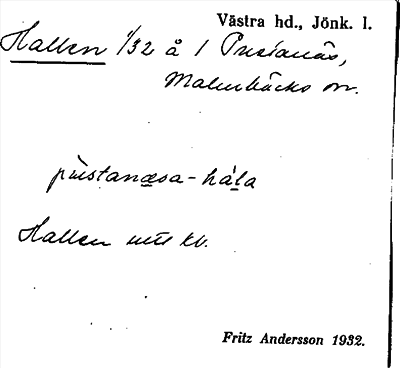 Västra hd., Jönk. l.
Hallen 1/32 å 1 Prestanäs,
Malmbäcks sn.
pi̇̀stanæsa-há̀la
Hallen utt kv.
Fritz Andersson 1932.